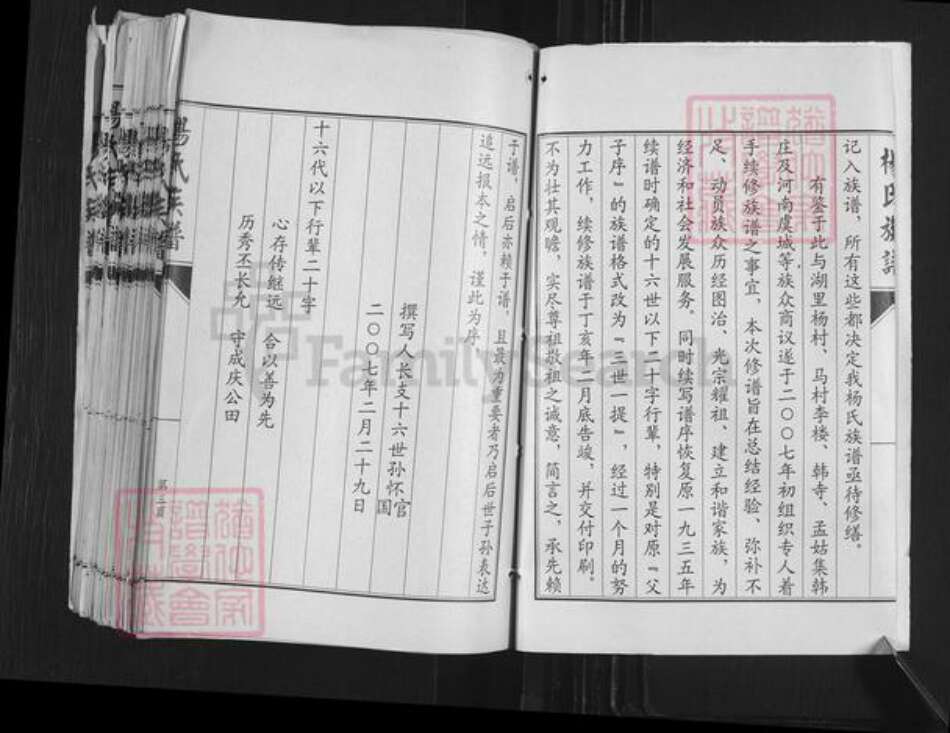 杨氏族谱
记入族谱，所有这些都决定我杨氏族谱亟待修缮。
有鉴于此与湖里杨村、马村李楼、韩寺、孟姑集韩
庄及河南虞城等族众商议遂于二〇〇七年初组织专人着
手续修族谱之事宜，本次修谱旨在总结经验、弥补不
足、动员族众历经图治、光宗耀祖、建立和谐家族，为
经济和社会发展服务。同时续写谱序恢复原一九三五年
续谱时确定的十六世以下二十字行辈，特别是对原“父
子序”的族谱格式改为“三世一提”，经过一个月的努
力工作，续修族谱于丁亥年二月底告竣，并交付印刷。
不为壮其观瞻，实尽尊祖敬祖之诚意，简言之，承先赖
于谱，启后亦赖于谱，且最为重要者乃启后世子孙表达
追远报本之情，谨此为序
撰写人长支十六世孙怀官
国
二〇〇七年二月二十九日
十六代以下行辈二十字
心存传继远 合以善为先
历秀丕长允 守成庆公田
杨氏族谱
第三页
FamilySearch